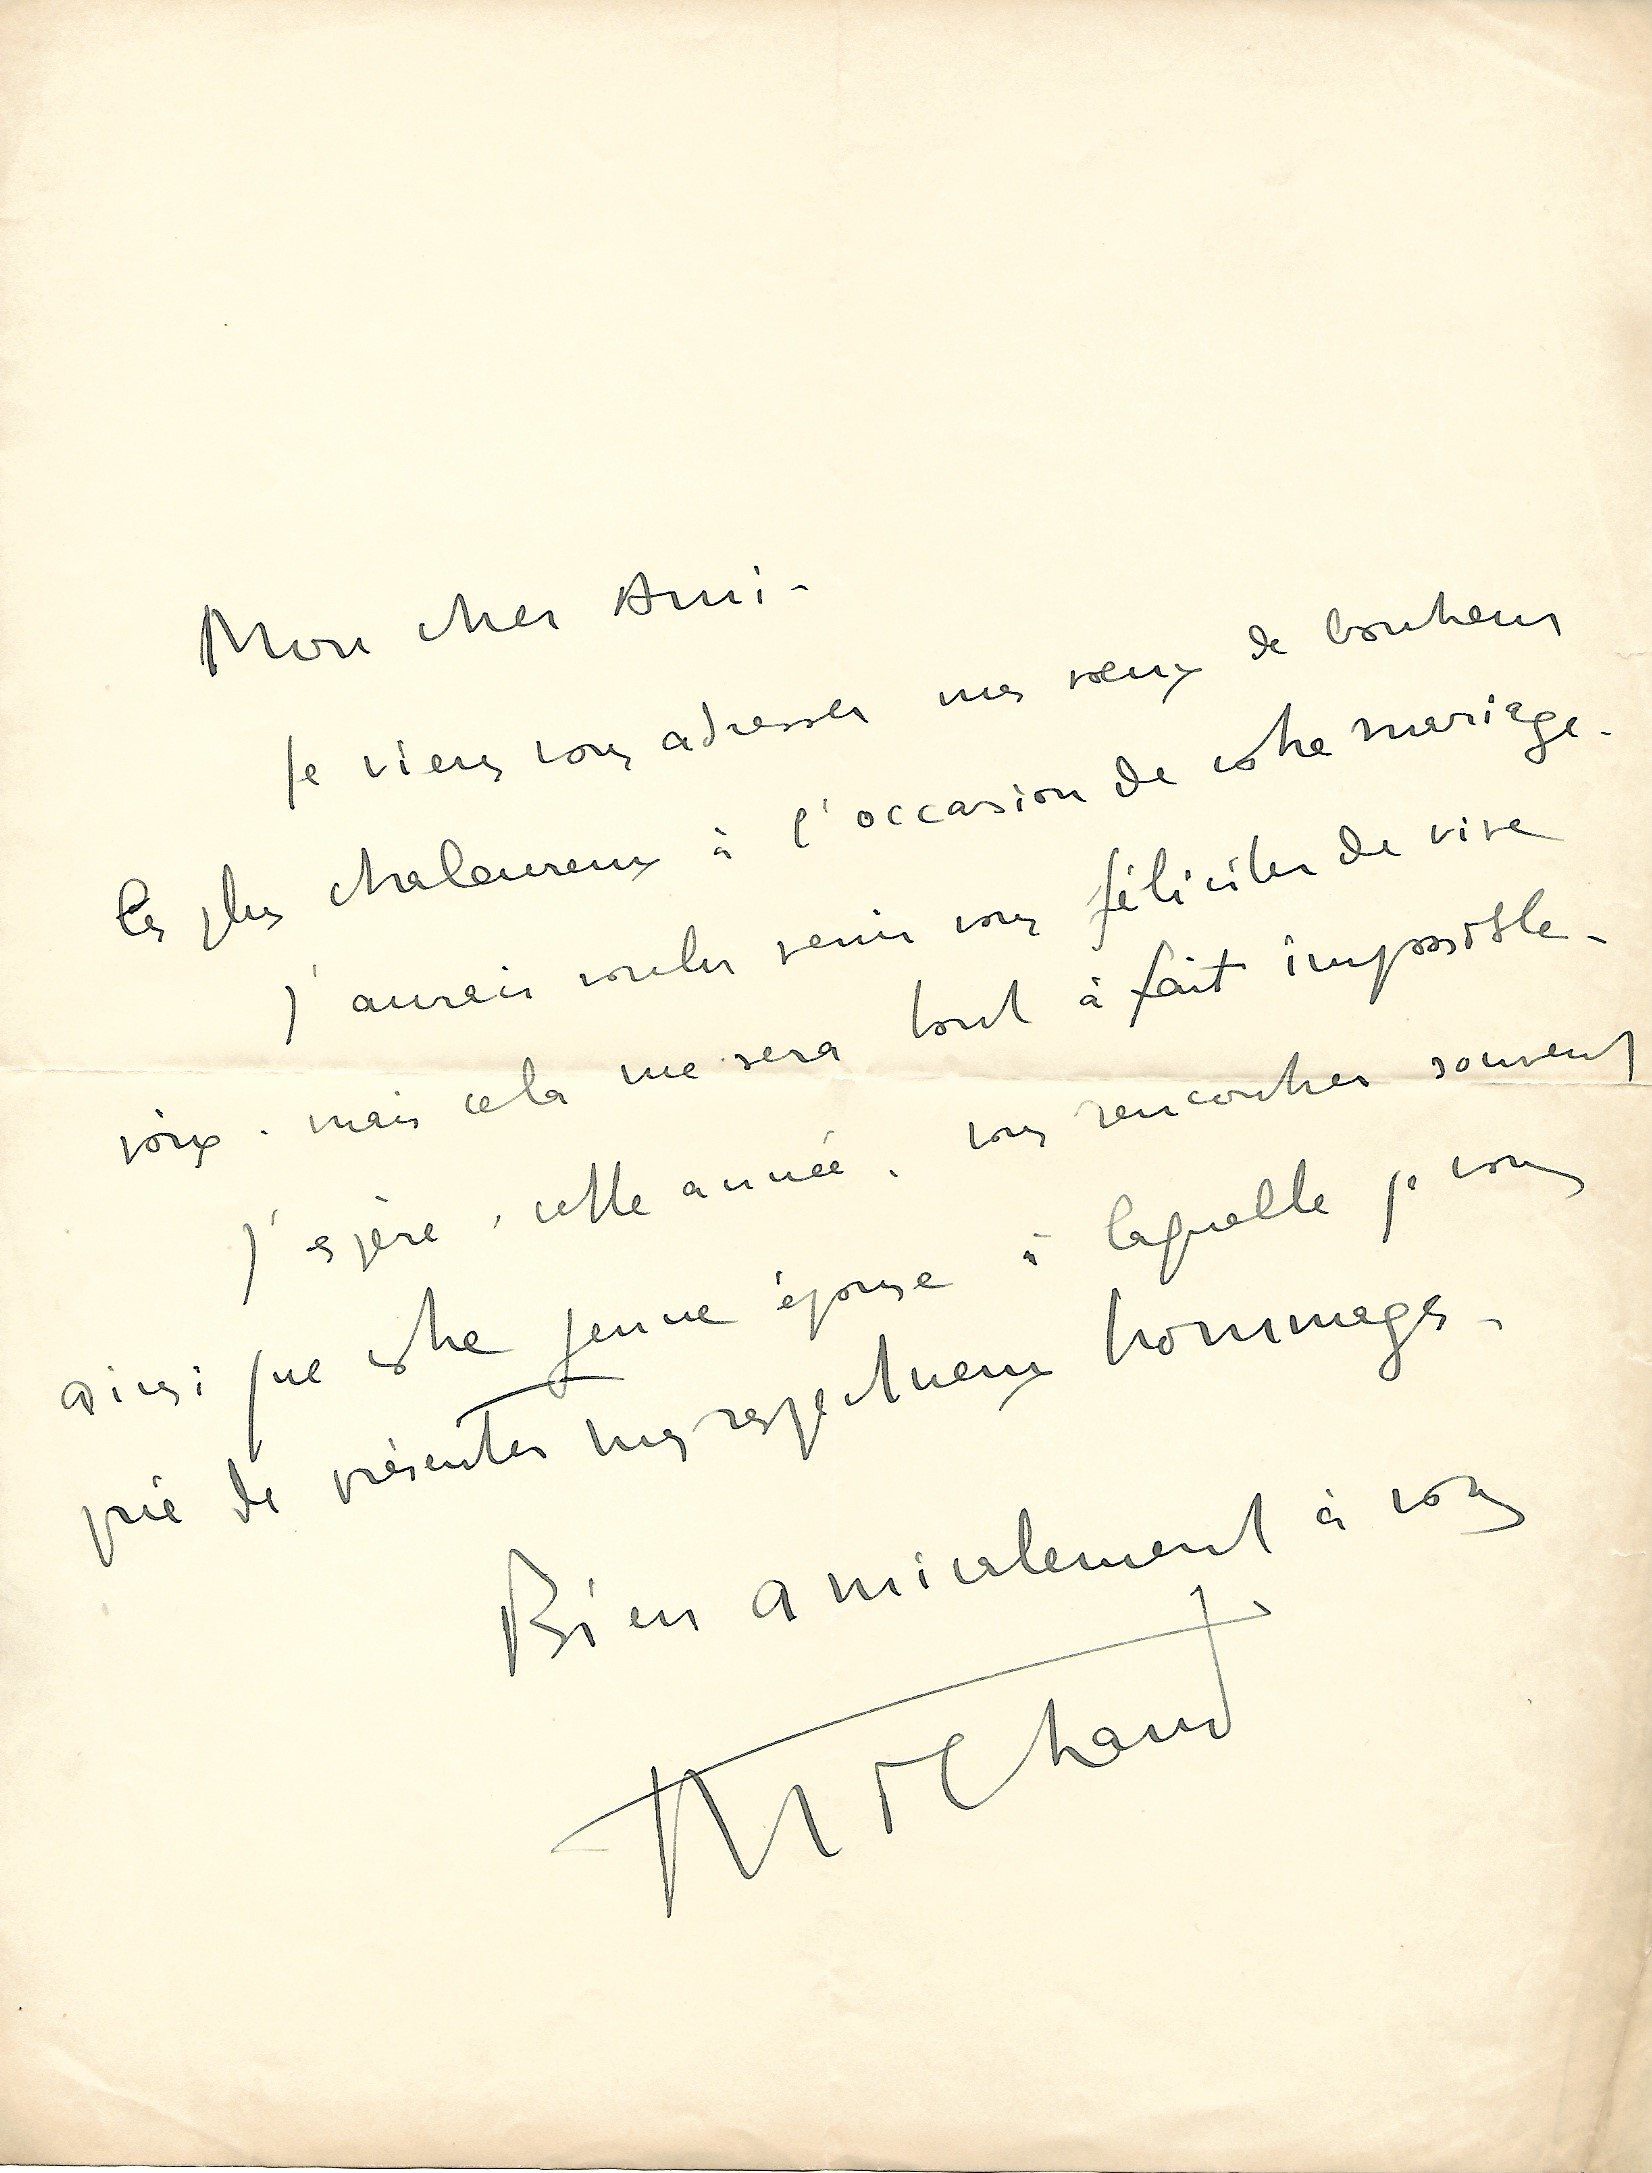 Mon cher Ami -
Je viens vous adresser mes vœux de bonheur
les plus chaleureux à l'occasion de votre mariage -
J'aurais voulu venir vous féliciter de vive
voix - mais cela me sera tout à fait impossible -
J'espère, cette année, vous rencontrer souvent
ainsi que votre jeune épouse à laquelle je vous
prie de présenter mes respectueux hommages -
Bien amicalement à vous